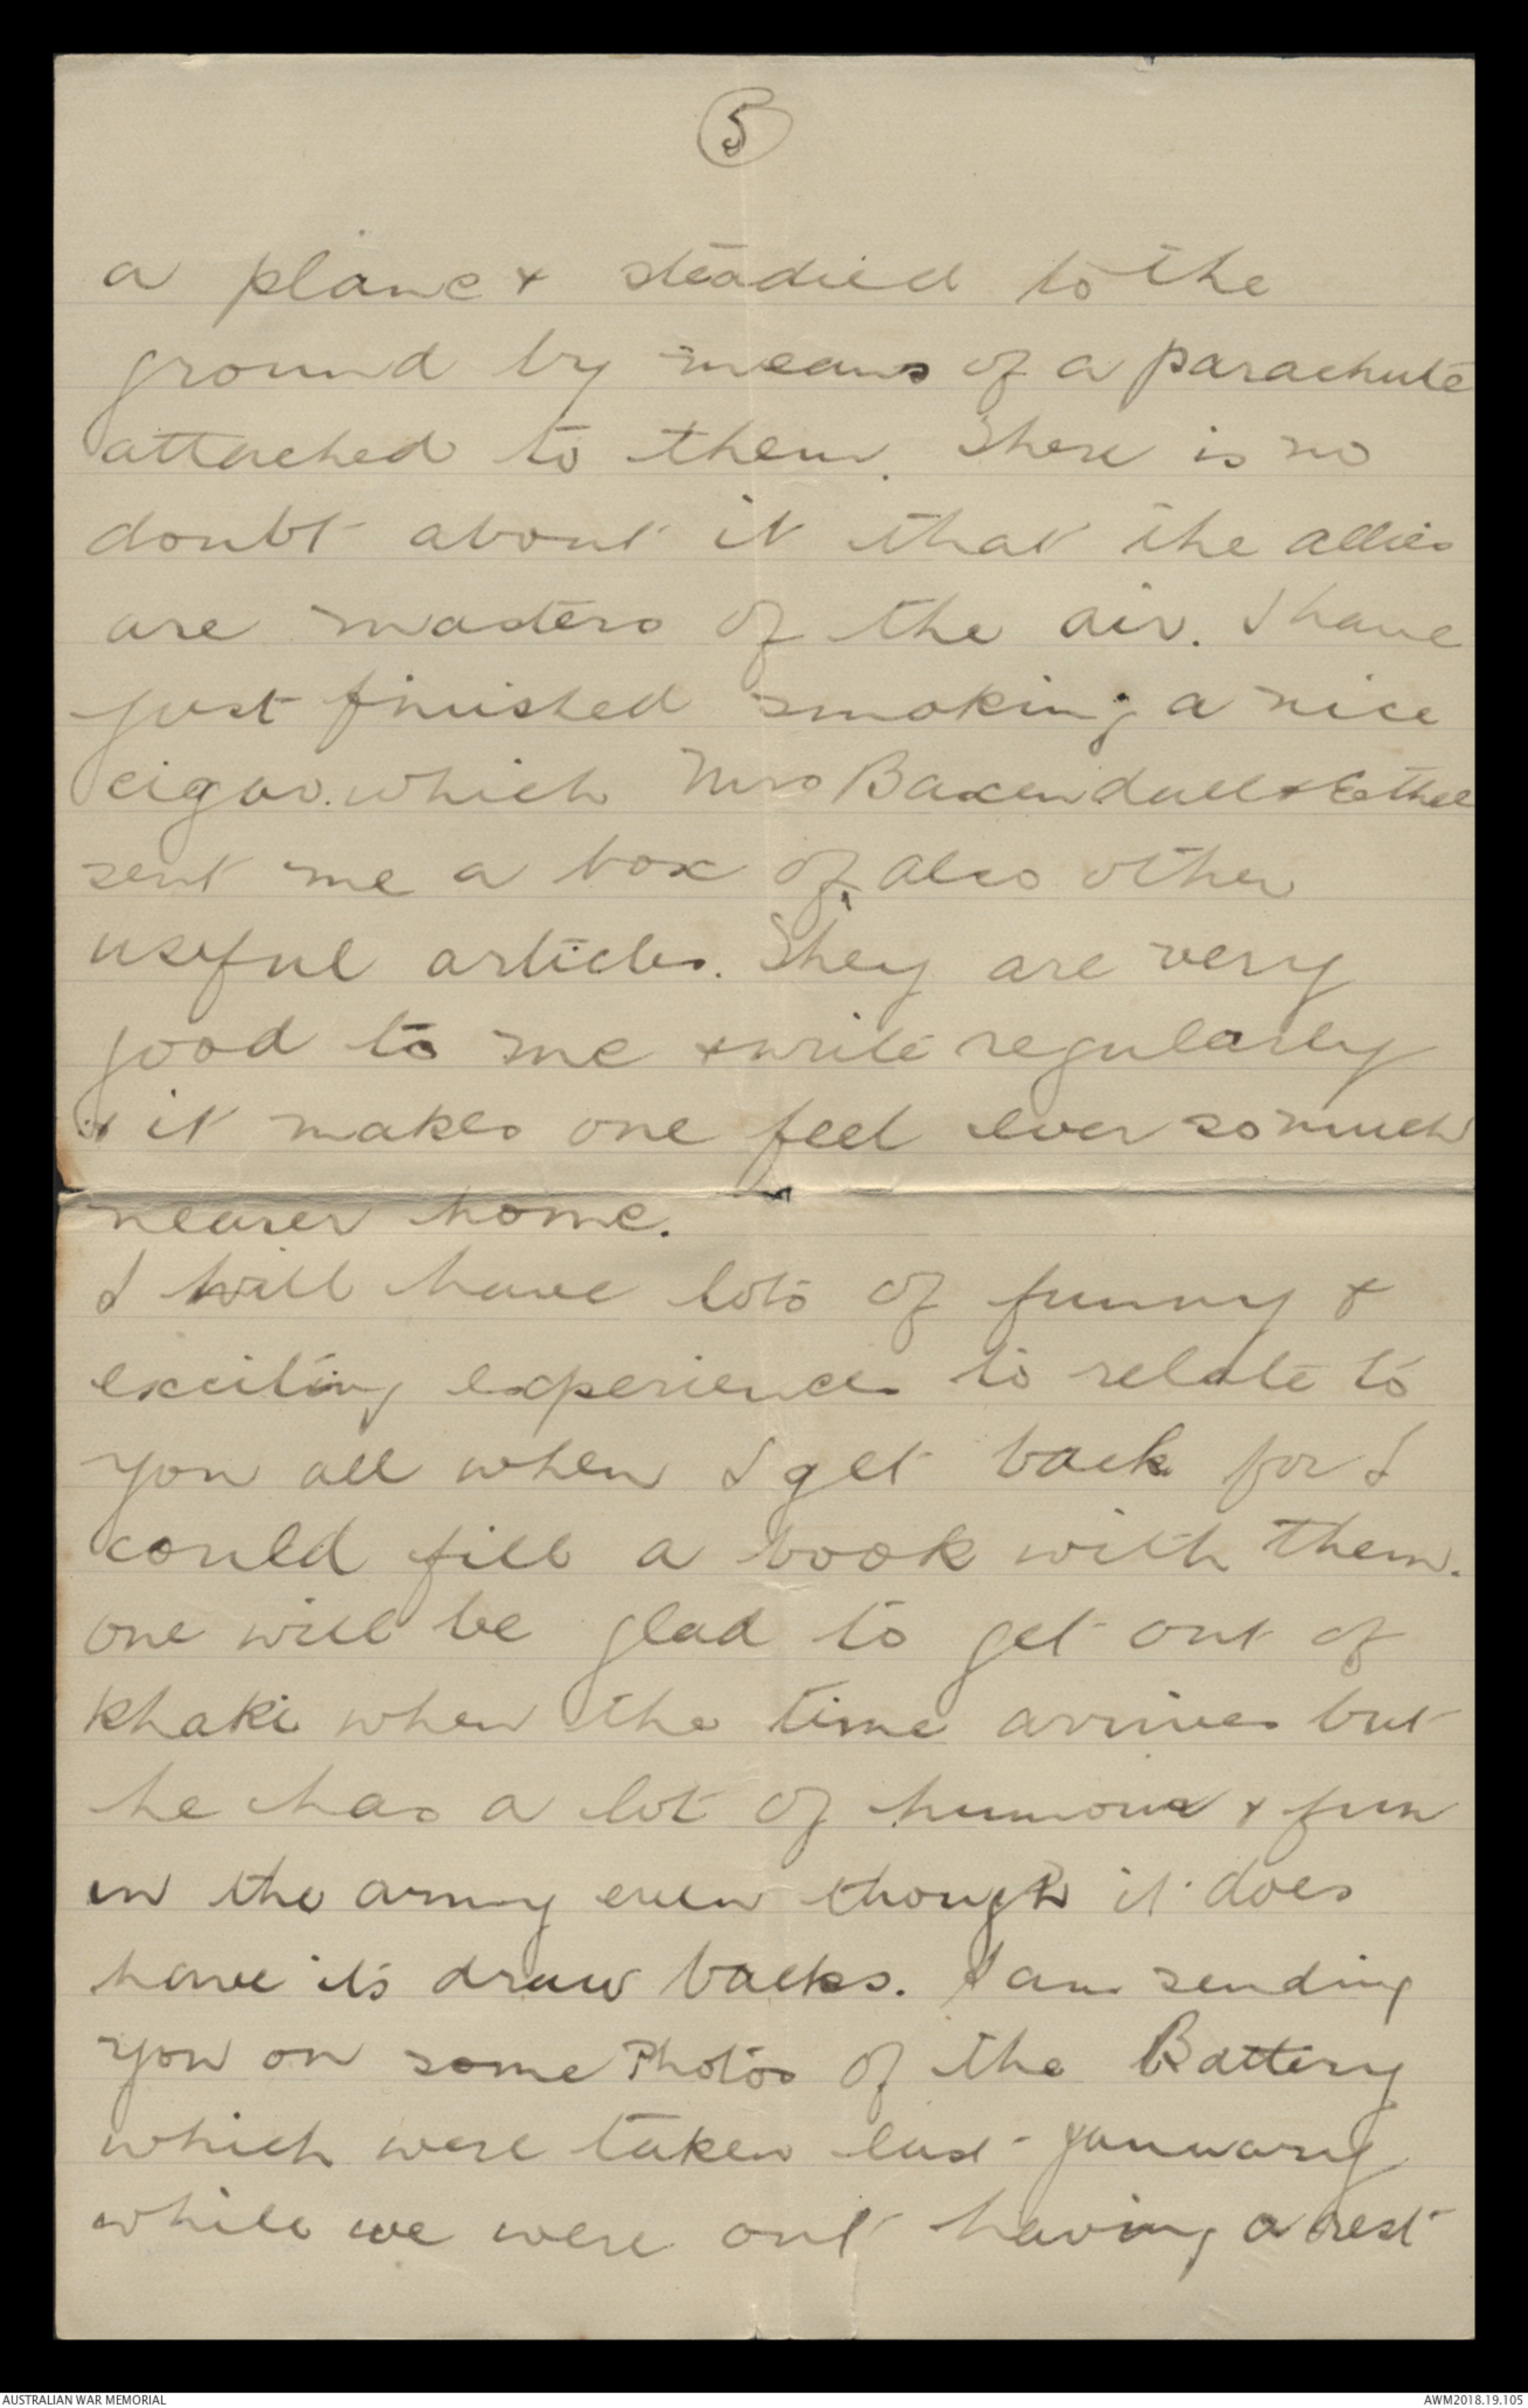 5
a plane & steadied to the
ground by means of a parachute
attached to them. There is no
doubt about it that the allies
are masters of the air. I have
just finished smoking a nice
cigar. which Mrs Baxendall & Ethel
sent me a box of, also other
useful articles. They are very
good to me & write regularly
& it makes one feel ever so much
nearer home.
I will have lots of funny &
exciting experiences to relate to
you all when I get back for I
could fill a book with them.
one will be glad to get out of
khaki when the time arrives but
he has a lot of humour & fun
in the army even though it does
have it's draw backs. I am sending
you on some Photos of the Battery
which were taken last January
while we were out having a rest
AUSTRALIAN WAR MEMORIAL
AWM2018.19.105